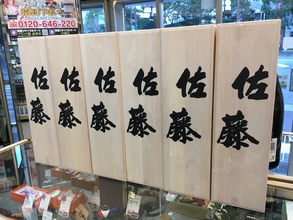 0120-646-220
佐藤
佐藤
佐藤
佐藤
佐藤
佐藤